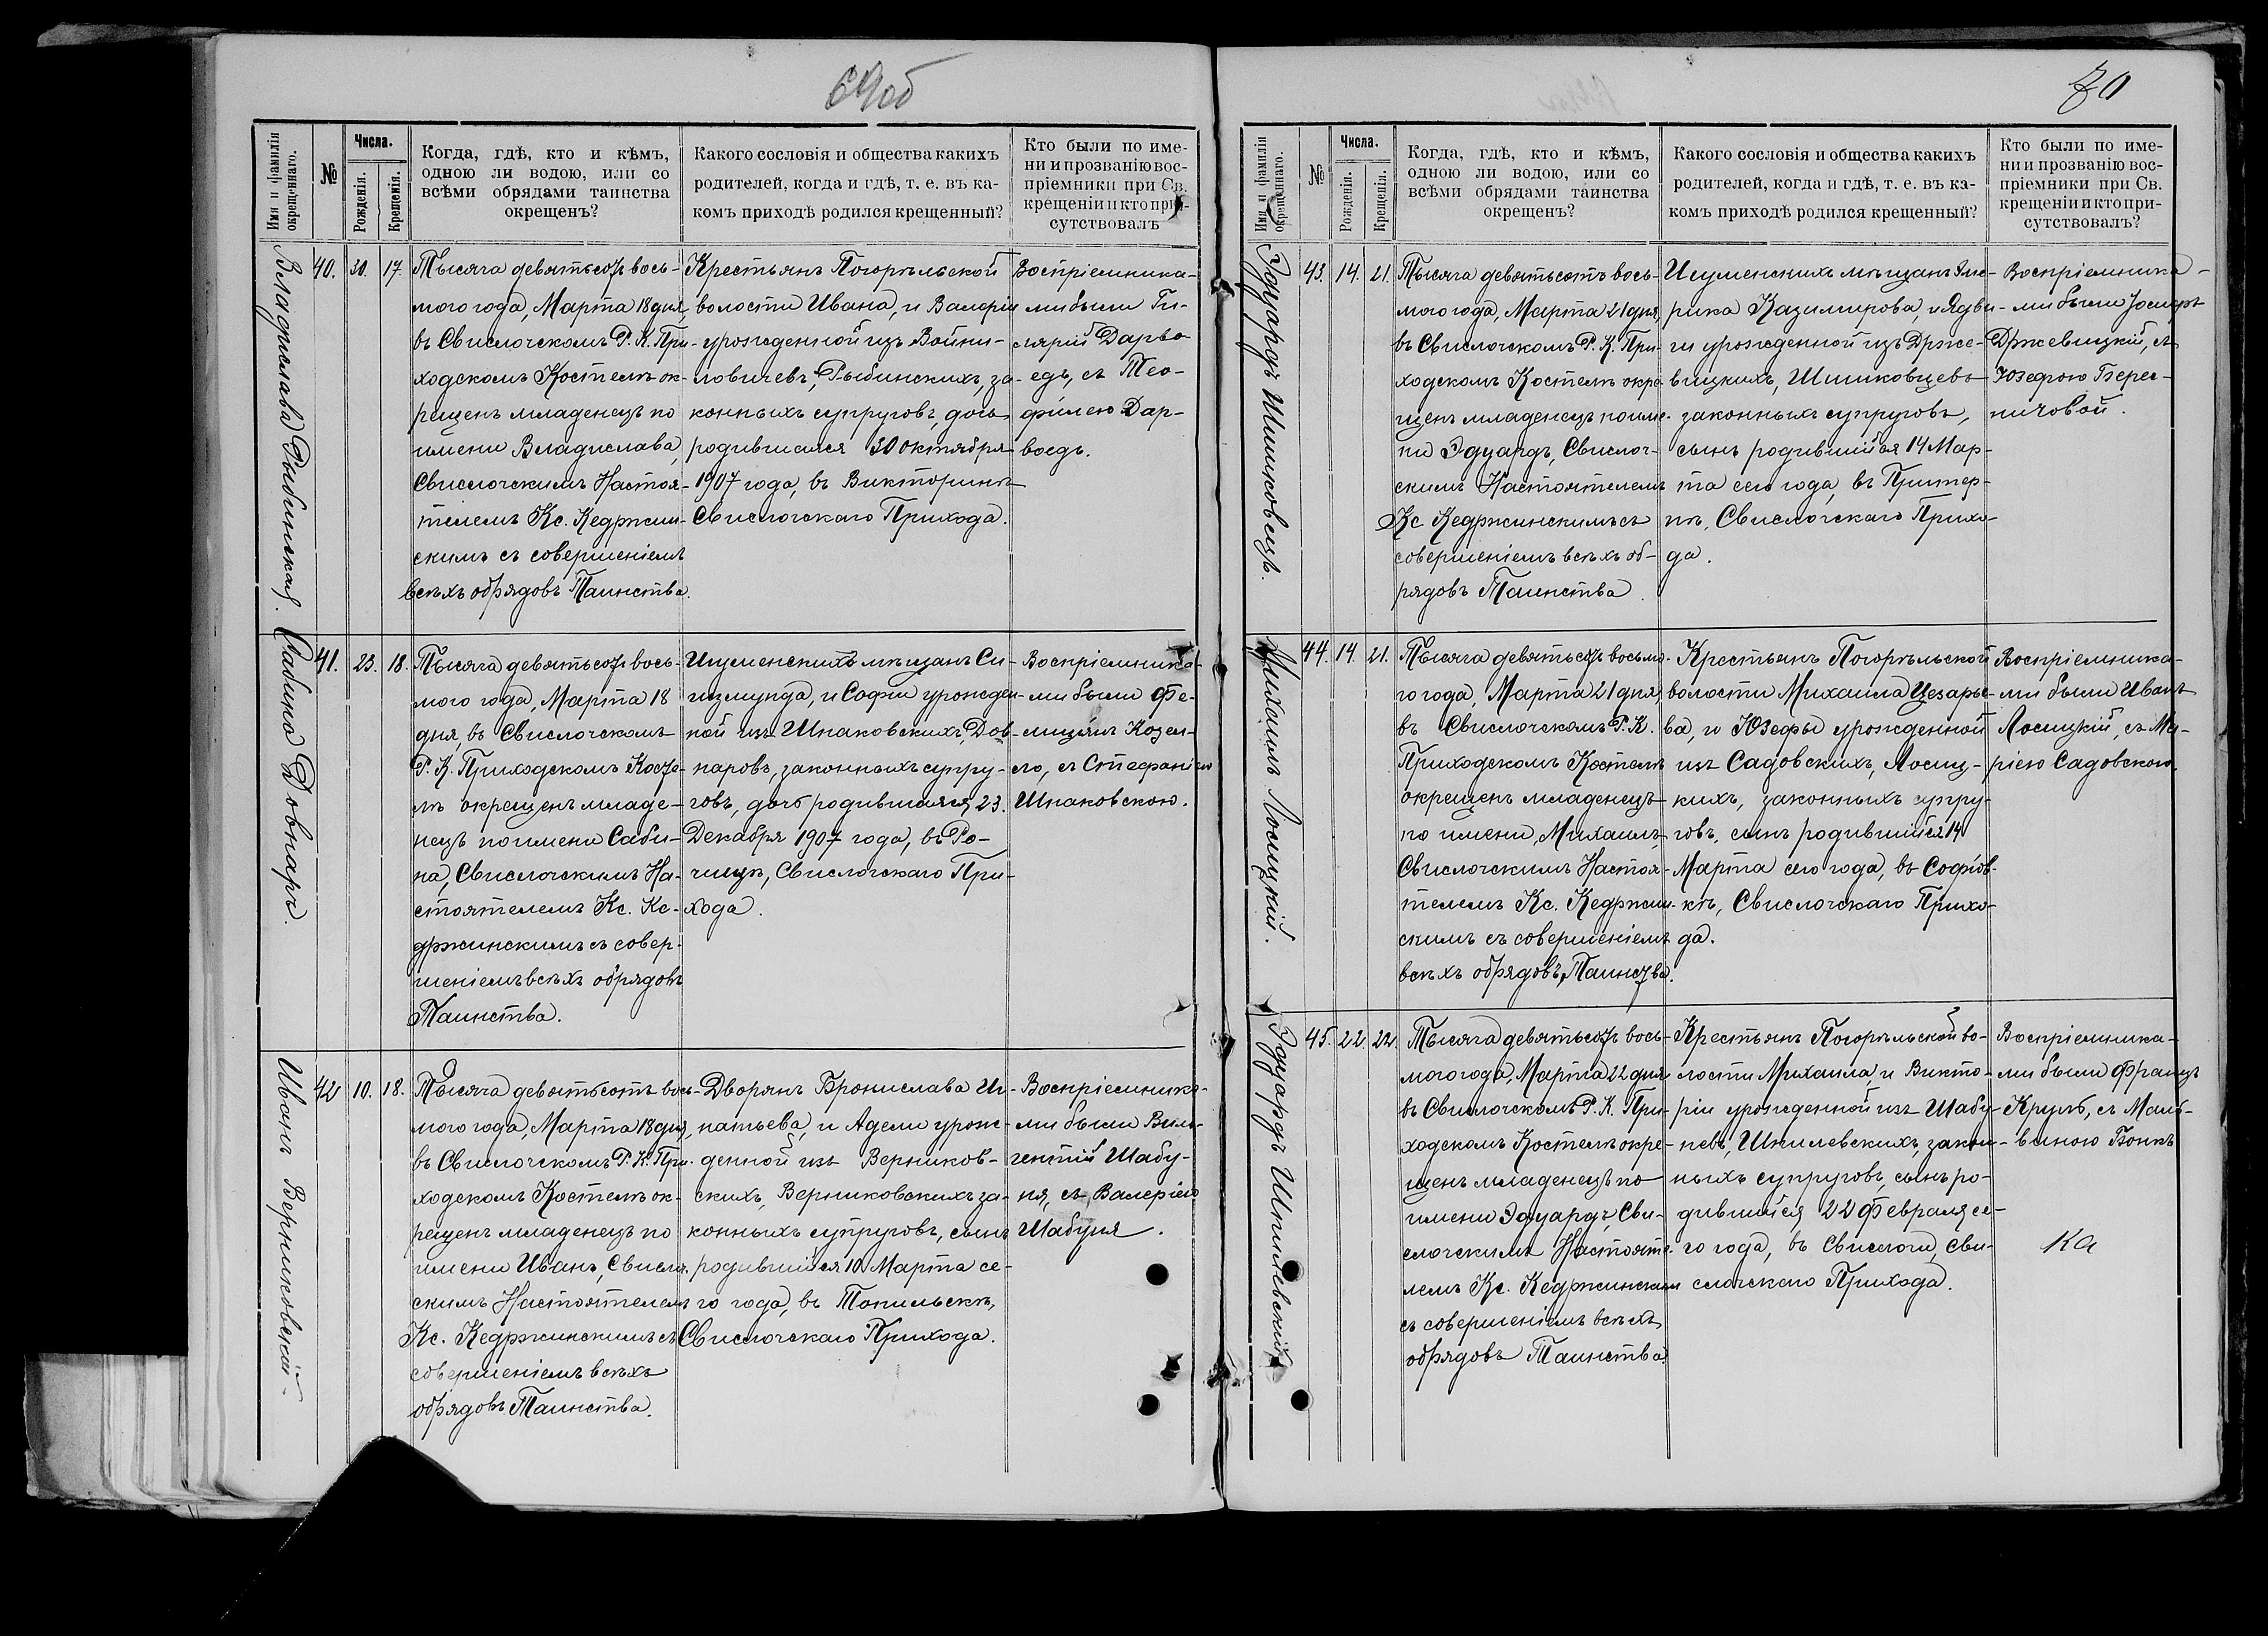 69об
Имя и фамилія окрещеннаго.
№
Числа.
Рожденія.
Крещенія.
Когда, гдѣ, кто и кѣмъ,
одною ли водою, или со
всѣми обрядами таинства
окрещенъ?
Какого сословія и общества какихъ
родителей, когда и гдѣ, т. е. въ ка-
комъ приходѣ родился крещенный?
Кто были по име-
ни и прозванію вос-
пріемники при Св.
крещеніи и кто при-
сутствовалъ
Владислава Рыбинская.
40.
30.
17.
Тысяча девятьсотъ вось-
мого года, Марта 18 дня,
въ Свислочскомъ Р. К. При-
ходскомъ Костелѣ ок-
рещенъ младенецъ по
имени Владислава,
Свислочскимъ Настоя-
телемъ Кс. Кедржин-
скимъ съ совершеніемъ
всѣхъ обрядовъ Таинства.
Крестьянъ Погорѣльской
волости Ивана, и Валеріи
урожденной изъ Война-
ловичевъ, Рыбинскихъ, за-
конныхъ супруговъ, дочь
родившаяся 30 октября
1907 года, въ Викторинѣ
Свислочскаго Прихода.
Воспріемника-
ми были Ги-
лярій Дарво-
едъ, съ Тео-
филею Дар-
воедъ.
Сабина Довнаръ.
41.
23.
18.
Тысяча девятьсотъ вось-
мого года, Марта 18
дня, въ Свислочскомъ
Р. К. Приходскомъ Косте-
лѣ окрещенъ младе-
нецъ по имени Саби-
на, Свислочскимъ На-
стоятелемъ Кс. Ке-
држинскимъ съ совер-
шеніемъ всѣхъ обрядовъ
Таинства.
Игуменскихъ мѣщанъ Си-
гизмунда, и Софіи урожден-
ной изъ Шпаковскихъ, Дов-
наровъ, законныхъ супру-
говъ, дочь родившаяся 23.
Декабря 1907 года, въ Ро-
Свислочскаго При-
хода.
Воспріемника-
ми были Фе-
лиціянъ Козел-
ло, съ Стефаніею
Шпаковскою.
Иванъ Верниковскій.
42
10.
18.
Тысяча девятьсотъ вось-
мого года, Марта 18 дня,
въ Свислочскомъ Р. К. При-
ходскомъ Костелѣ ок-
рещенъ младенецъ по
имени Иванъ, Свислоч-
скимъ Настоятелемъ
Кс. Кедржинскимъ съ
совершеніемъ всѣхъ
обрядовъ Таинства.
Дворянъ Бронислава Иг-
натьева, и Адели урож-
денной изъ Верников-
скихъ, Верниковскихъ за-
конныхъ супруговъ, сынъ
родившійся 10 Марта се-
го года, въ Топильскѣ,
Свислочскаго Прихода.
Воспріемника-
ми были Вин-
центій Шабу-
ня, съ Валеріею
Шабуня.
70
Имя и фамилія окрещеннаго.
№
Числа.
Рожденія.
Крещенія.
Когда, гдѣ, кто и кѣмъ,
одною ли водою, или со
всѣми обрядами таинства
окрещенъ?
Какого сословія и общества какихъ
родителей, когда и гдѣ, т. е. въ ка-
комъ приходѣ родился крещенный?
Кто были по име-
ни и прозванію вос-
пріемники при Св.
крещеніи и кто при-
сутствовалъ?
Эдуардъ Шишковецъ.
43.
14.
21.
Тысяча девятьсотъ вось-
мого года, Марта 21 дня,
въ Свислочскомъ Р. К. При-
ходскомъ Костелѣ окре-
щенъ младенецъ по име-
ни Эдуардъ, Свислоч-
скимъ Настоятелемъ
Кс Кедржинскимъ съ
совершеніемъ всѣхъ об-
рядовъ Таинства.
Игуменскихъ мѣщанъ Эме-
рика Казимирова, и Ядви-
ги урожденной изъ Држе-
вицкихъ, Шишковцевъ
законныхъ супруговъ,
сынъ родившійся 14 Мар-
та сего года, въ Притер-
пѣ, Свислочскаго Прихо-
да.
Воспріемника-
ми были Іосифъ
Држевицкій, съ
Юзефою Берес-
Михаилъ Лосицкій.
44.
14.
21.
Тысяча девятьсотъ восьмо-
го года, Марта 21 дня,
въ Свислочскомъ Р. К.
Приходскомъ Костелѣ
окрещенъ младенецъ
по имени, Михаилъ,
Свислочскимъ Настоя-
телемъ Кс. Кедржин-
скимъ съ совершеніемъ
всѣхъ обрядовъ, Таинства.
Крестьянъ Погорѣльской
волости Михаила Цезарье-
ва, и Юзефы урожденной
изъ Садовскихъ, Лосиц-
кихъ, законныхъ супру-
говъ, сынъ родившійся 14
Марта сего года, въ Софіов-
кѣ, Свислочскаго Прихо-
да.
Воспріемника-
ми были Иванъ
Лосицкій, съ Ма-
ріею Садовскою.
Эдуардъ Шпилевскій.
45.
22.
22.
Тысяча девятьсотъ вось-
мого года, Марта 22 дня
въ Свислочскомъ Р. К. При-
ходскомъ Костелѣ окре-
щенъ младенецъ по
имени Эдуардъ, Сви-
слочскимъ Настояте-
лемъ Кс. Кедржинскимъ
съ совершеніемъ всѣхъ
обрядовъ Таинства.
Крестьянъ Погорѣльской во-
лости Михаила, и Викто-
ріи урожденной изъ Шабу-
невъ, Шпилевскихъ, закон-
ныхъ супруговъ, сынъ ро-
дившійся 22 Февраля се-
го года, въ Свислочи, Сви-
слочскаго Прихода.
Воспріемника-
ми были Францъ
Круль, съ Маль-
виною Бонкъ
Ка